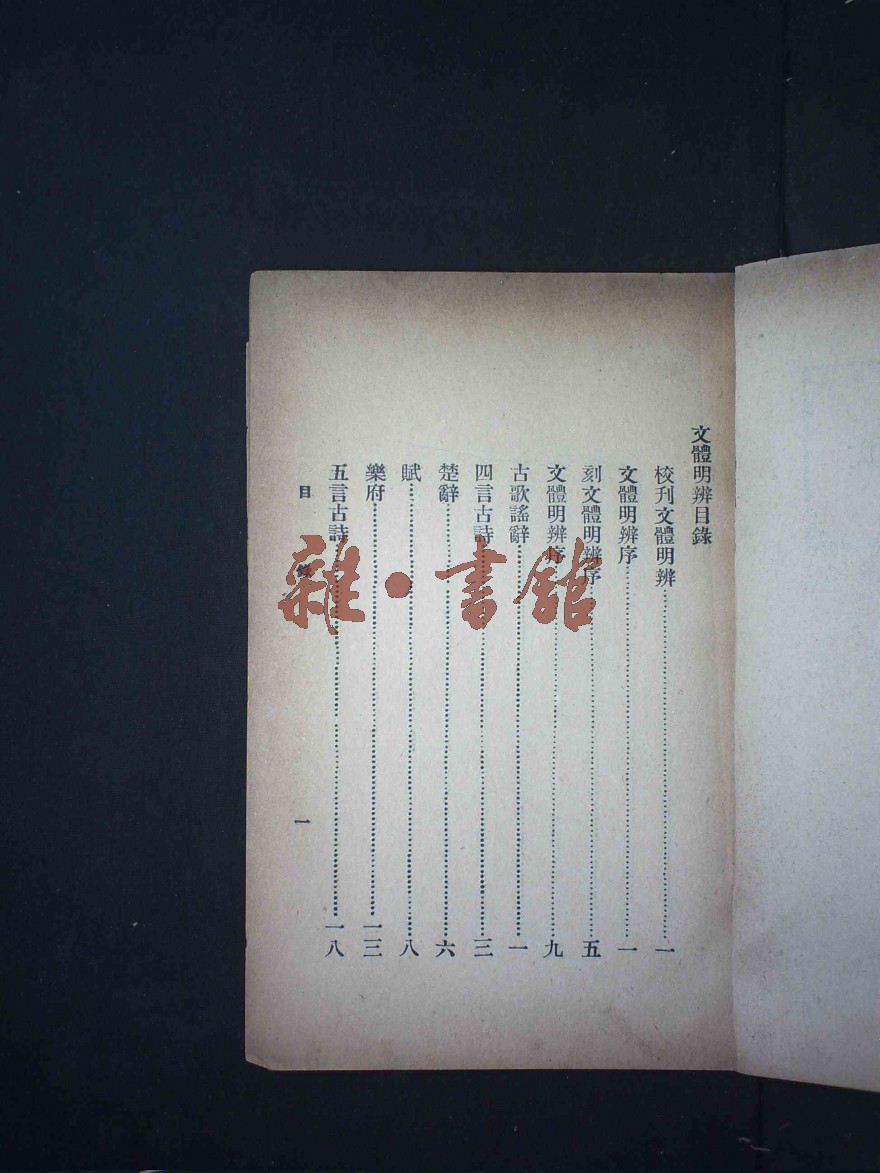 文體明辨目錄
校刊文體明辨……一
文體明辨序……一
刻文體明辨序……五
文體明辨序……九
古歌謠辭……一
四言古詩……三
楚辭……六
賦……八
樂府……一三
五言古詩……一八
目錄 一
雜·書館